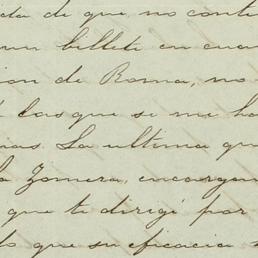 da de que no conte
un billete en cua
ion de Roma, no
las que se me ha
nas. La ultima qu
la Zomera, encargan
que te dirigí por
lo que su eficacia